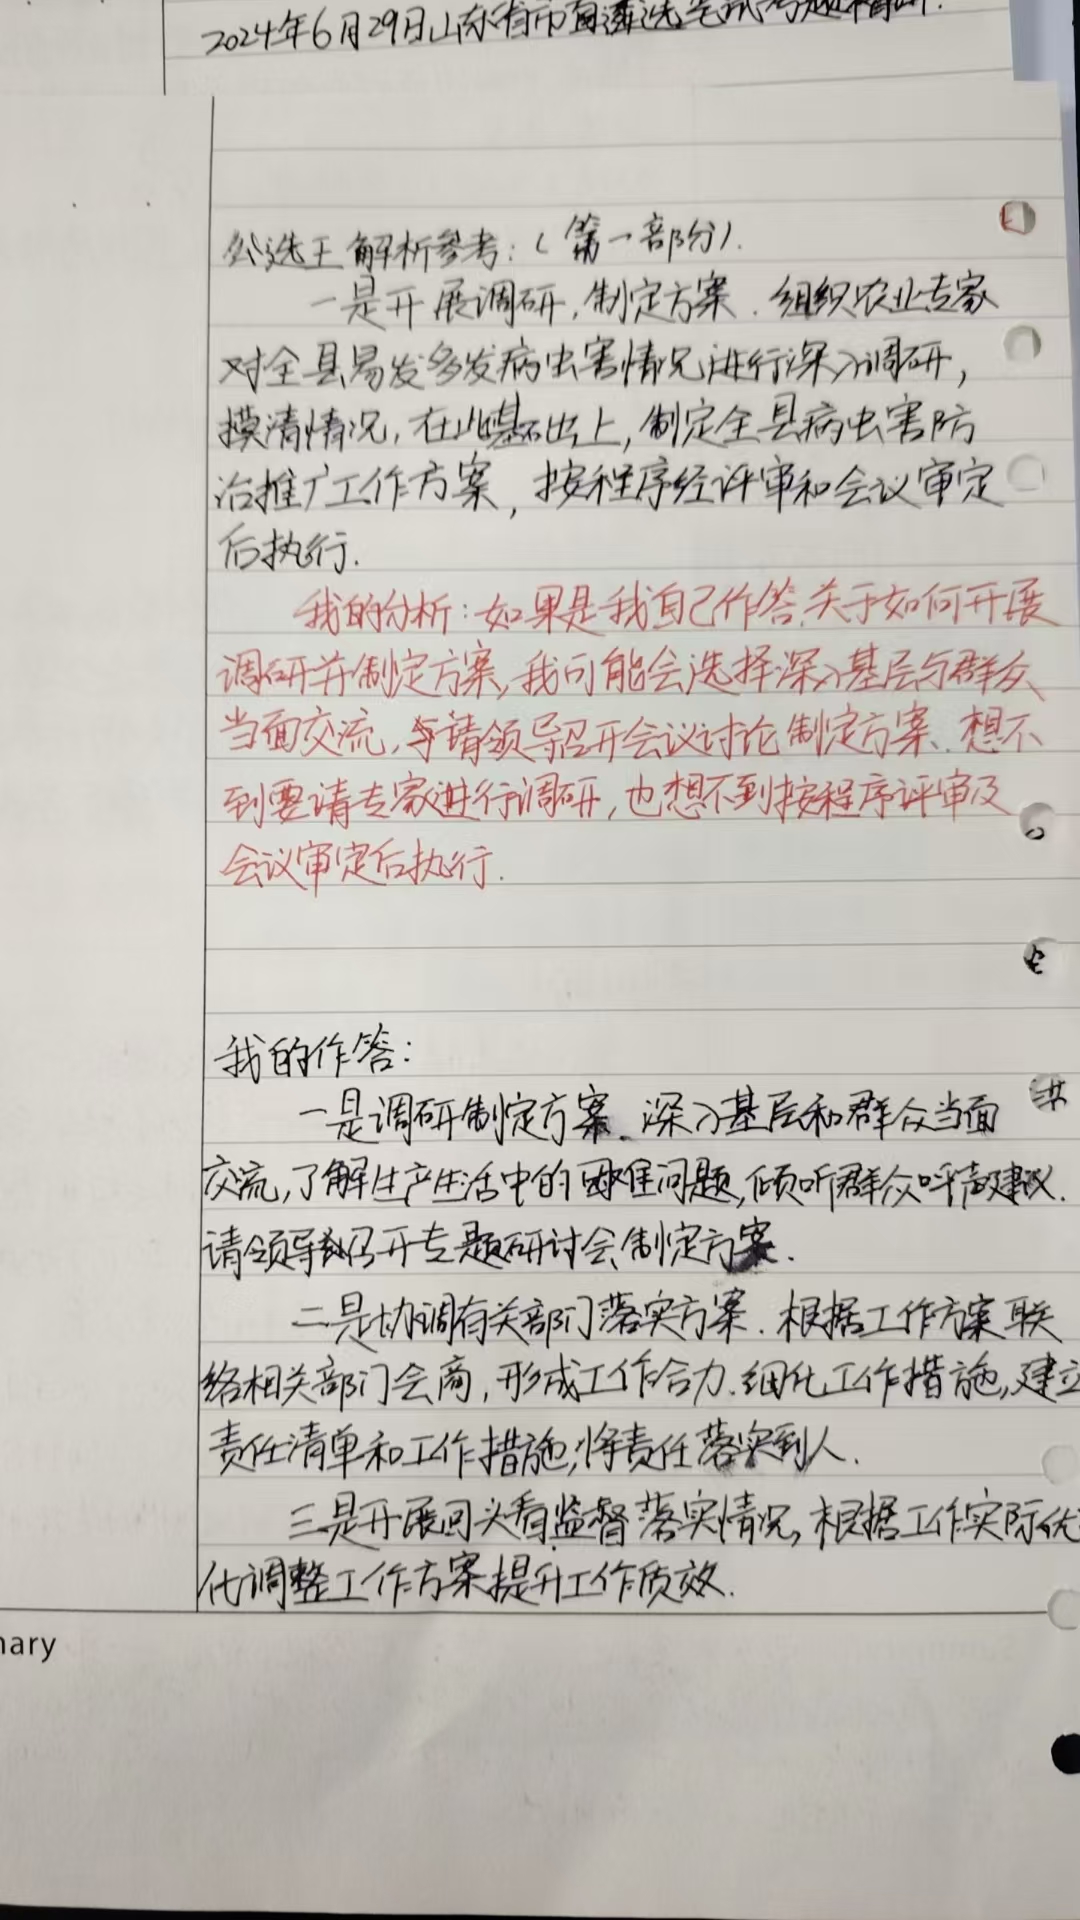 2024年6月29日山东省市直遴选笔试
公选王解析参考:(第一部分).
一是开展调研,制定方案.组织农业专家
对全县易发多发病虫害情况进行深入调研,
摸清情况,在此基础上,制定全县病虫害防
治推广工作方案,按程序经评审和会议审定
后执行.
我的分析:如果是我自己作答,关于如何开展
调研并制定方案,我可能会选择深入基层与群众
当面交流,再请领导召开会议讨论制定方案.想不
到要请专家进行调研,也想不到按程序评审及
会议审定后执行.
我的作答:
一是调研制定方案.深入基层和群众当面
交流,了解生产生活中的困难问题,倾听群众呼声建议.
请领导召开专题研讨会制定方案.
二是协调有关部门落实方案.根据工作方案联
络相关部门会商,形成工作合力.细化工作措施,建立
责任清单和工作措施,将责任落实到人.
三是开展回头看监督落实情况,根据工作实际优
化调整工作方案提升工作质效.
nary